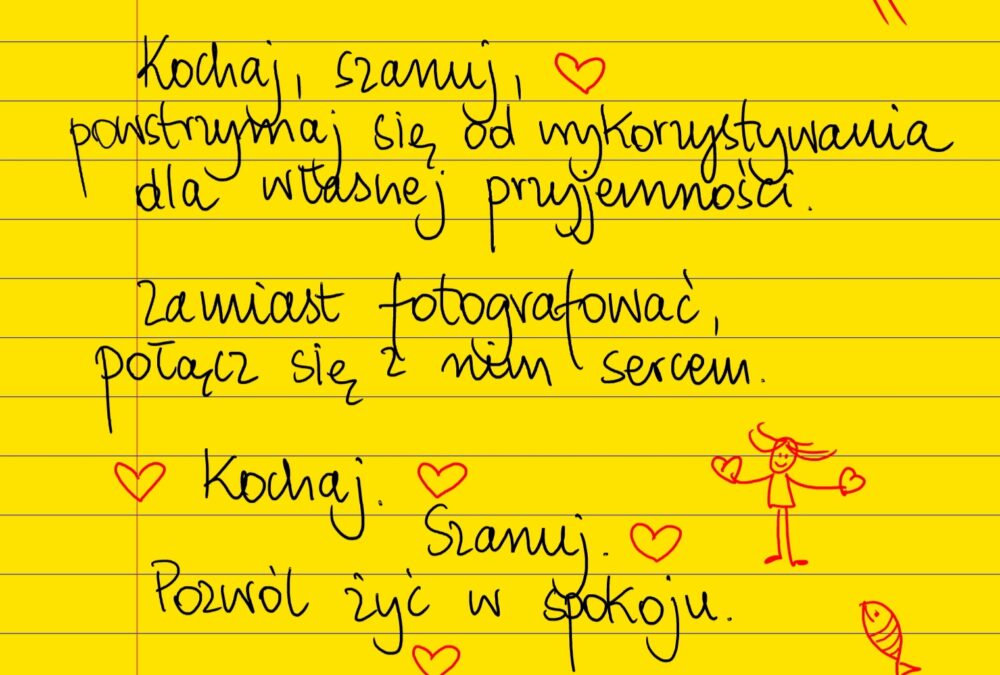 Kochaj, szanuj,
powstrzymaj się od wykorzystywania
dla własnej przyjemności.
Zamiast fotografować,
połącz się z nim sercem.
Kochaj.
Szanuj.
Pozwól żyć w spokoju.